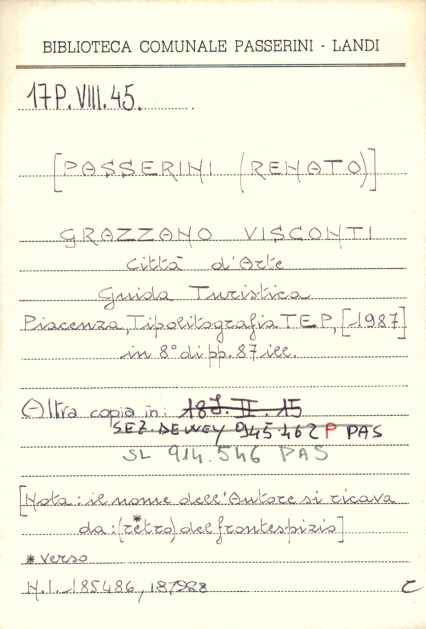 BIBLIOTECA COMUNALE PASSERINI - LANDI
17P.VIII.45.
[PASSERINI (RENATO)]
GRAZZANO VISCONTI
Città d'Arte
Guida Turistica
Piacenza, Tipolitografia T.E.P., [1987]
in 8° di pp. 87 ill.
Altra copia in: 18J.II.15
SEZ. DEWEY 945.462 P PAS
SL 914.546 PAS
[Nota: il nome dell'Autore si ricava
da: (retro)* del frontespizio]
* verso
N.I. 185486, 187988